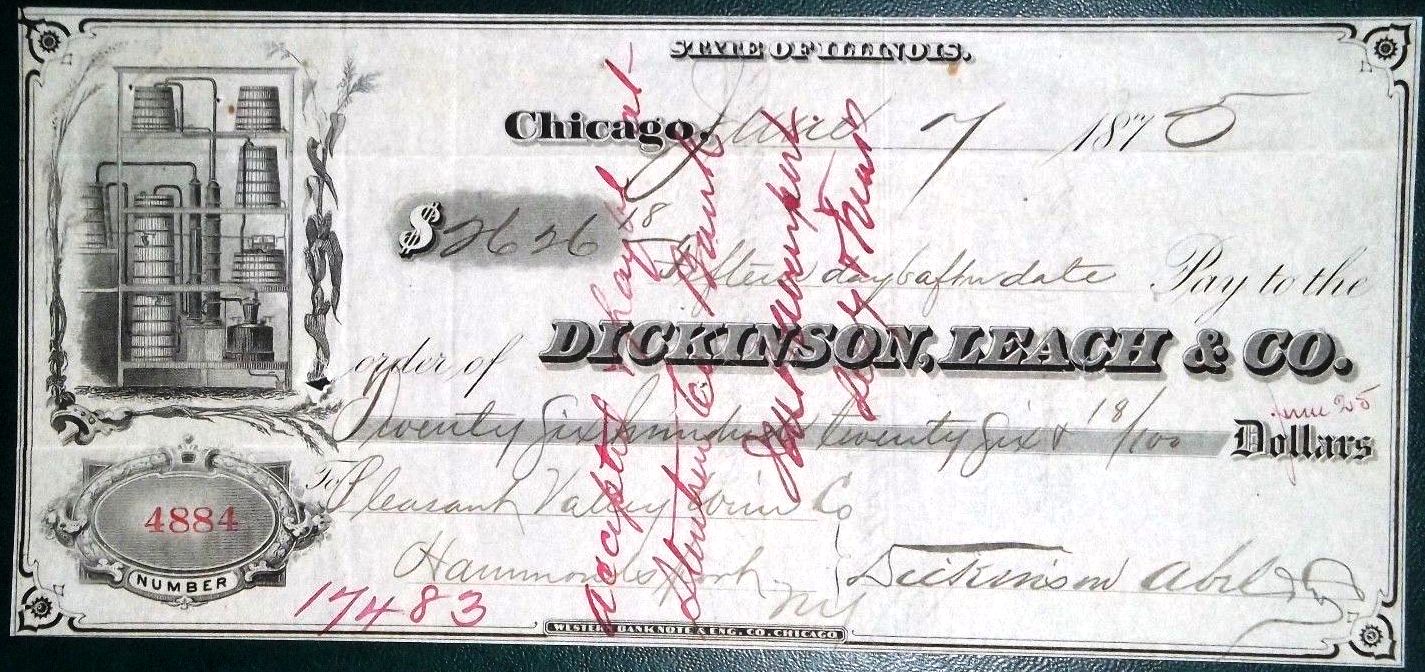 STATE OF ILLINOIS.
Chicago, June 7 1875
$ 2626 18
Fifteen days after date Pay to the
order of DICKINSON, LEACH & CO.
Twenty Six hundred twenty Six & 18/100 Dollars
June 25
To Pleasant Valley Wine Co
Hammondsport
NY
Dickinson Abel & Co
4884
NUMBER
17483
WESTERN BANK NOTE & ENG. CO. CHICAGO
accepted payable at
Bank
Hammondsport